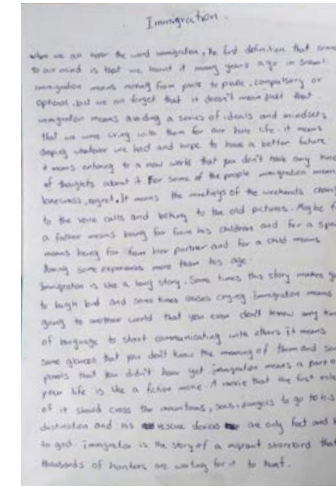 Immigration.
when we are hear the word immigration, the first definition that comes
to our mind is that we learnt it many years ago in school.
immigration means moving from place to place, compulsory or
optional, but we all forget that it doesn't mean just that
immigration means avoiding a series of ideals and mindsets
that we were living with them for our hole life. it means
whatever we had and hope to have a better future
it means entering to a new world that you don't have any kind
of thoughts about it. For some of the people immigration means
loneliness, regret, It means the of the weekends
to the voice calls and to the old pictures. Maybe for
a father means being far from his children and for a
means being far from her partner and for a child means
some experiences more than his age.
Immigration is like a long story. Some times this story makes
to laugh loud and some times causes crying Immigration means
going to another world that you even don't know any kind
of language to start communicating with others it means
some glances that you don't know the meaning of them and some
that you didn't know yet immigration means a part of
your life is like a fiction movie. A movie that the first
of it should cross the mountains, seas, to go to his
destination and his rescue devices are only feet and
to god. Immigration is the story of a migrant that
thousands of hunters are waiting for it to hunt.